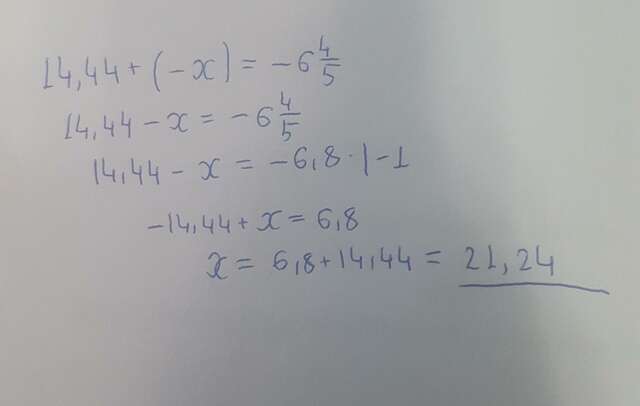 14,44 + (-x) = -6 4/5
14,44 - x = -6 4/5
14,44 - x = -6,8 · | -1
-14,44 + x = 6,8
x = 6,8 + 14,44 = 21,24